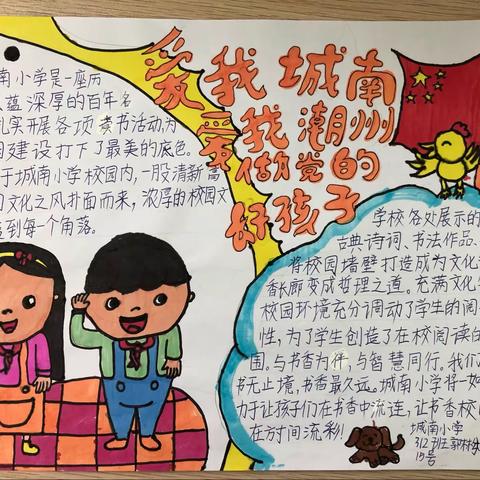 爱我城南
爱我潮州
做党的
好孩子
南小学是一座历
蕴深厚的百年名
扎实开展各项读书活动,为
园建设打下了最美的底色。
于城南小学校园内,一股清新高
文化之风扑面而来,浓厚的校园文
到每个角落。
学校各处展示的
古典诗词、书法作品、
将校园墙壁打造成为文化
香长廊变成哲理之道。充满文化
校园环境充分调动了学生的阅
性,为了学生创造了在校阅读的
围。与书香为伴,与智慧同行。我们
书无止境,书香最久远。城南小学将一如
力于让孩子们在书香中流连,让书香校
在方寸间流彩!
城南小学
312班郭梓
15号